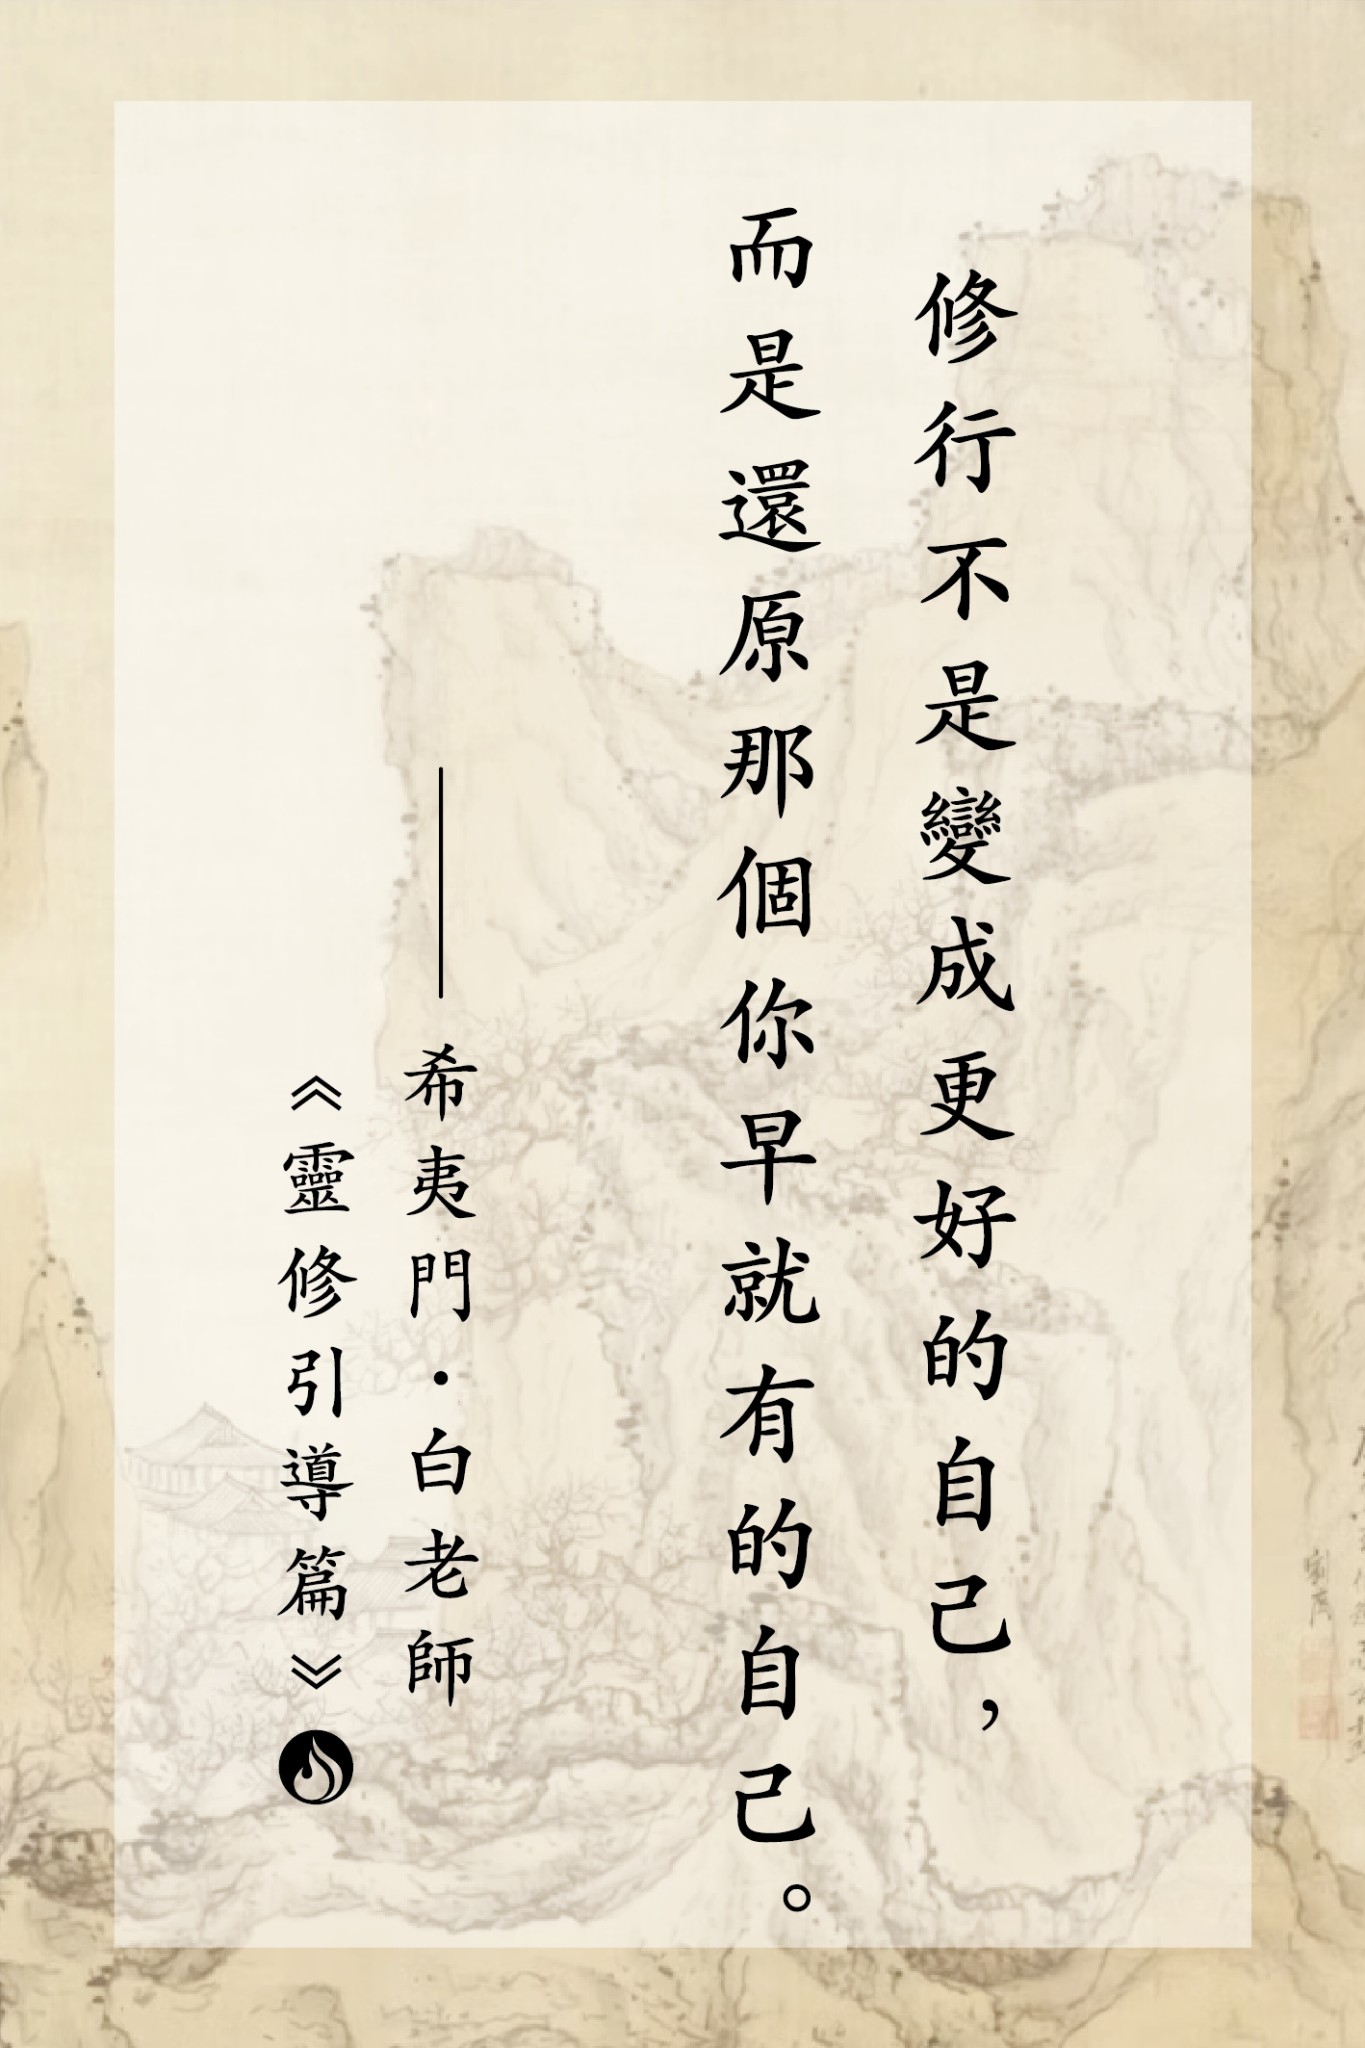 修行不是變成更好的自己，
而是還原那個你早就有的自己。
——希夷門·白老師
《靈修引導篇》